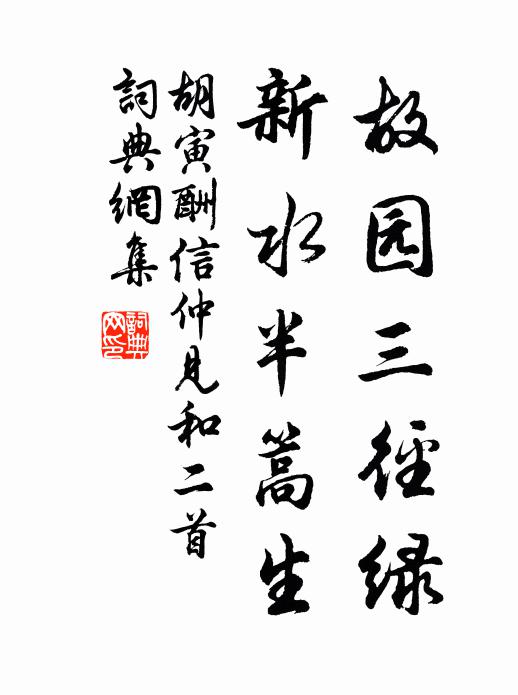 故园三径绿
新水半篙生
胡寅酬信仲见和二首
詞典網集
詞典网印